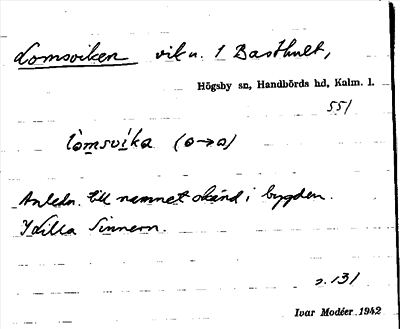 Lomsviken vik u. 1 Basthult,
Högsby sn, Handbörds hd, Kalm. l.
551
lòmsvíka (o→a)
Anledn. till namnet okänd i bygden.
I Lilla Sinnern.
s. 131
Ivar Modéer 1942